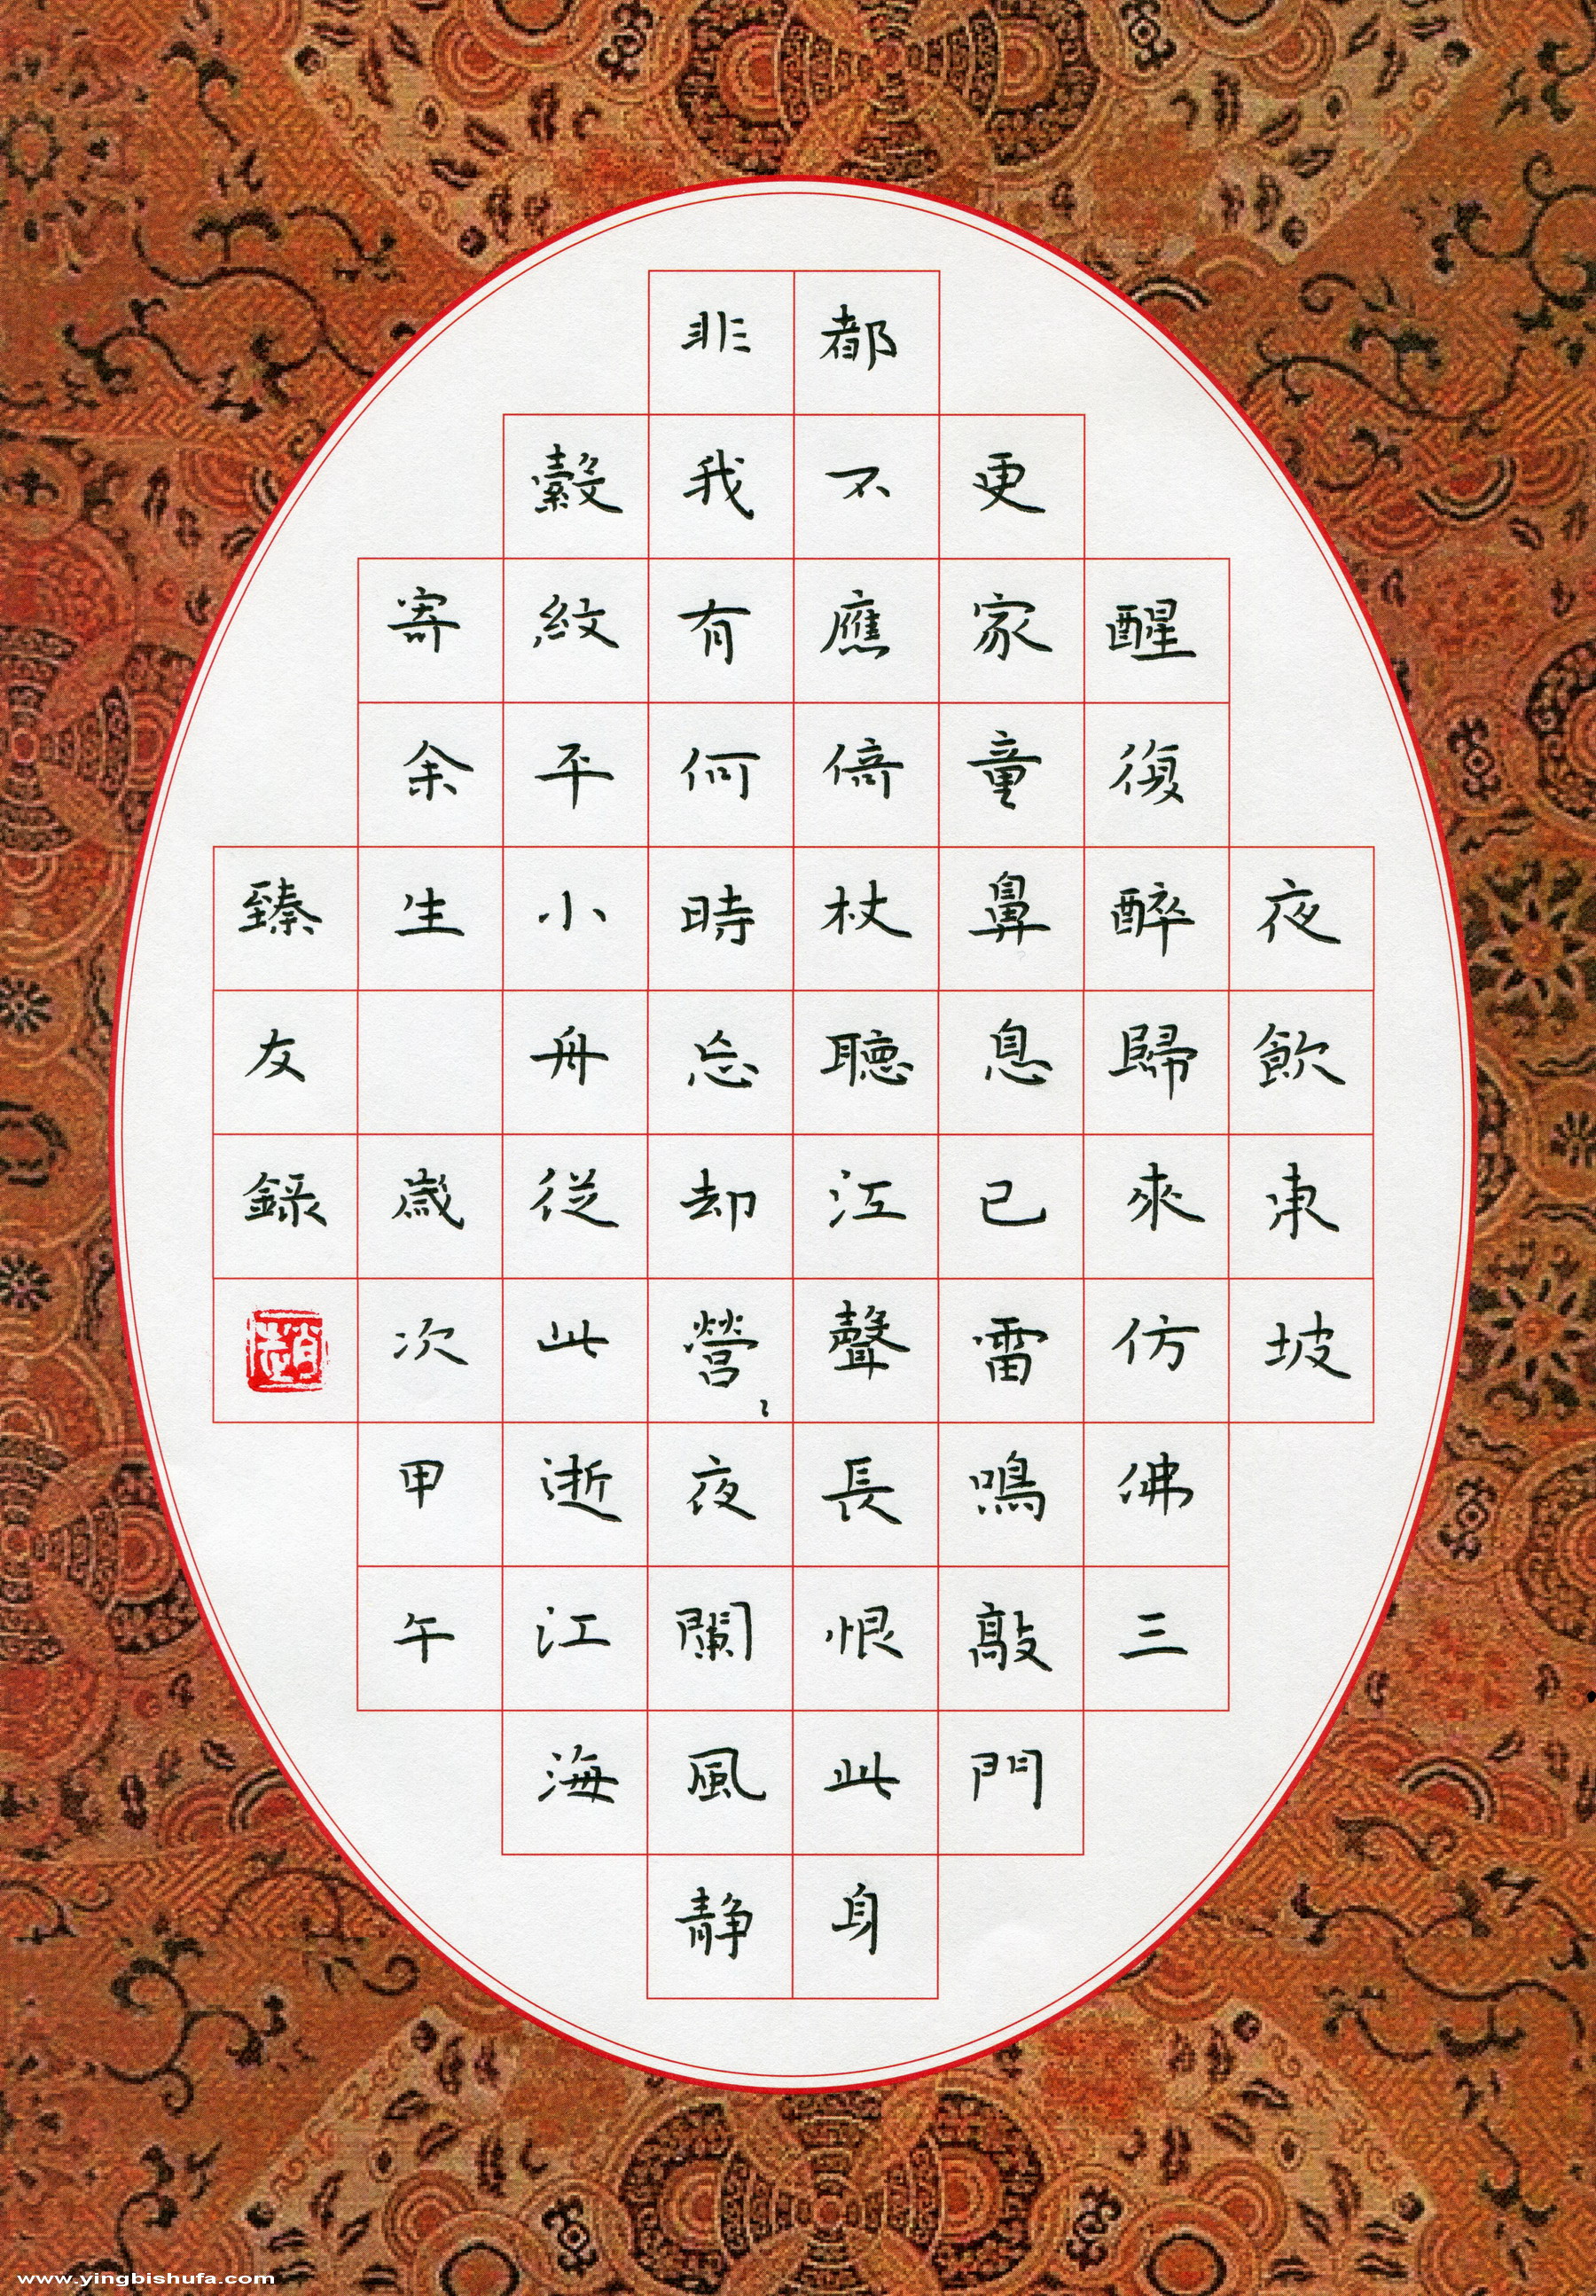 夜飲東坡
醒復醉歸來仿佛三
更家童鼻息已雷鳴敲門
都不應倚杖聴江聲長恨此身
非我有何時忘却營〻夜闌風静
縠紋平小舟従此逝江海
寄余生 歲次甲午
臻友録
趙
www.yingbishufa.com